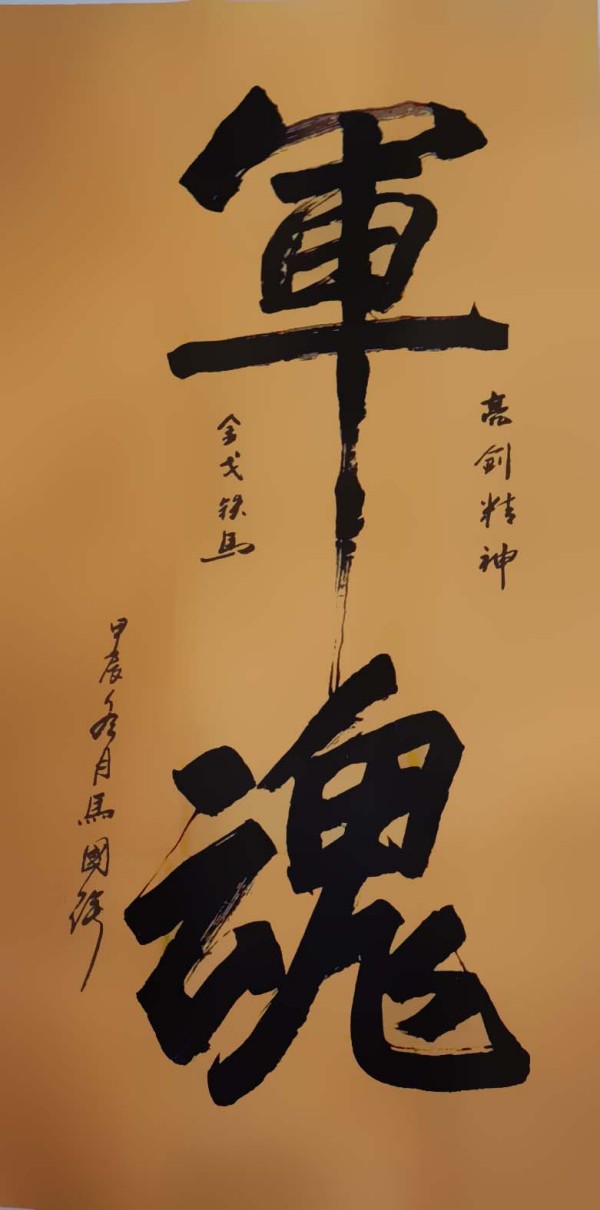 軍魂
亮劍精神
金戈铁馬
甲辰冬月馬國